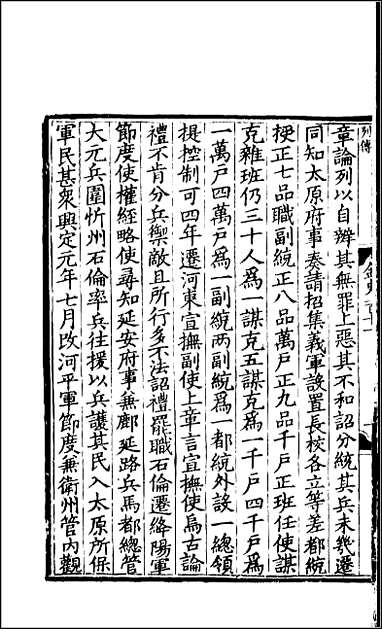 列傳
金史百十一
章論列以自辨其無罪上惡其不和詔分統其兵未幾遷
同知太原府事奏請招集義軍設置長校各立等差都統
授正七品職副統正八品萬戶正九品千戶正班任使謀
克雜班仍三十人爲一謀克五謀克爲一千戶四千戶爲
一萬戶四萬戶爲一副統兩副統爲一都統外設一總領
提控制可四年遷河東宣撫副使上章言宣撫使烏古論
禮不肯分兵禦敵且所行多不法詔禮罷職石倫遷絳陽軍
節度使權經略使尋知延安府事兼鄜延路兵馬都總管
大元兵圍忻州石倫率兵往援以兵護其民入太原所保
軍民甚衆興定元年七月改河平軍節度兼衛州管內觀